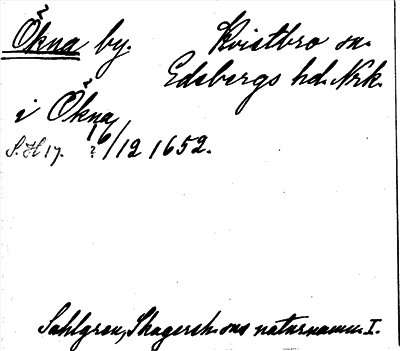 Ökna by. Kvistbro sn.
Edsbergs hd. Nrk.
i Ökna
S.H 17. ? 16/12 1652.
Sahlgren, Skagersh. sns naturnamn I.